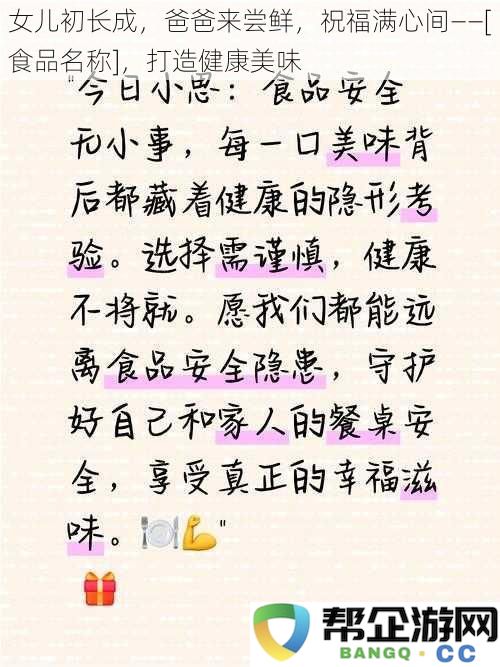 女儿初长成，爸爸来尝鲜，祝福满心间——[
食品名称]，打造健康美味
"今日小思：食品安全
无小事，每一口美味背
后都藏着健康的隐形考
验。选择需谨慎，健康
不将就。愿我们都能远
离食品安全隐患，守护
好自己和家人的餐桌安
全，享受真正的幸福滋
味。🍽️💪"
🎁
帮企游网
BANGQ·CC